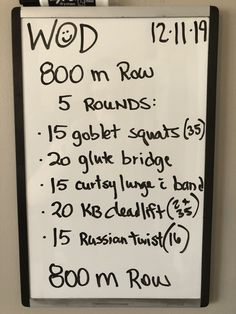 WOD 12-11-19
800 m Row
5 ROUNDS:
• 15 goblet squats (35)
• 20 glute bridge
• 15 curtsy lunge c̄ band
• 20 KB deadlift (2x35)
• 15 Russian twist (16)
800 m Row